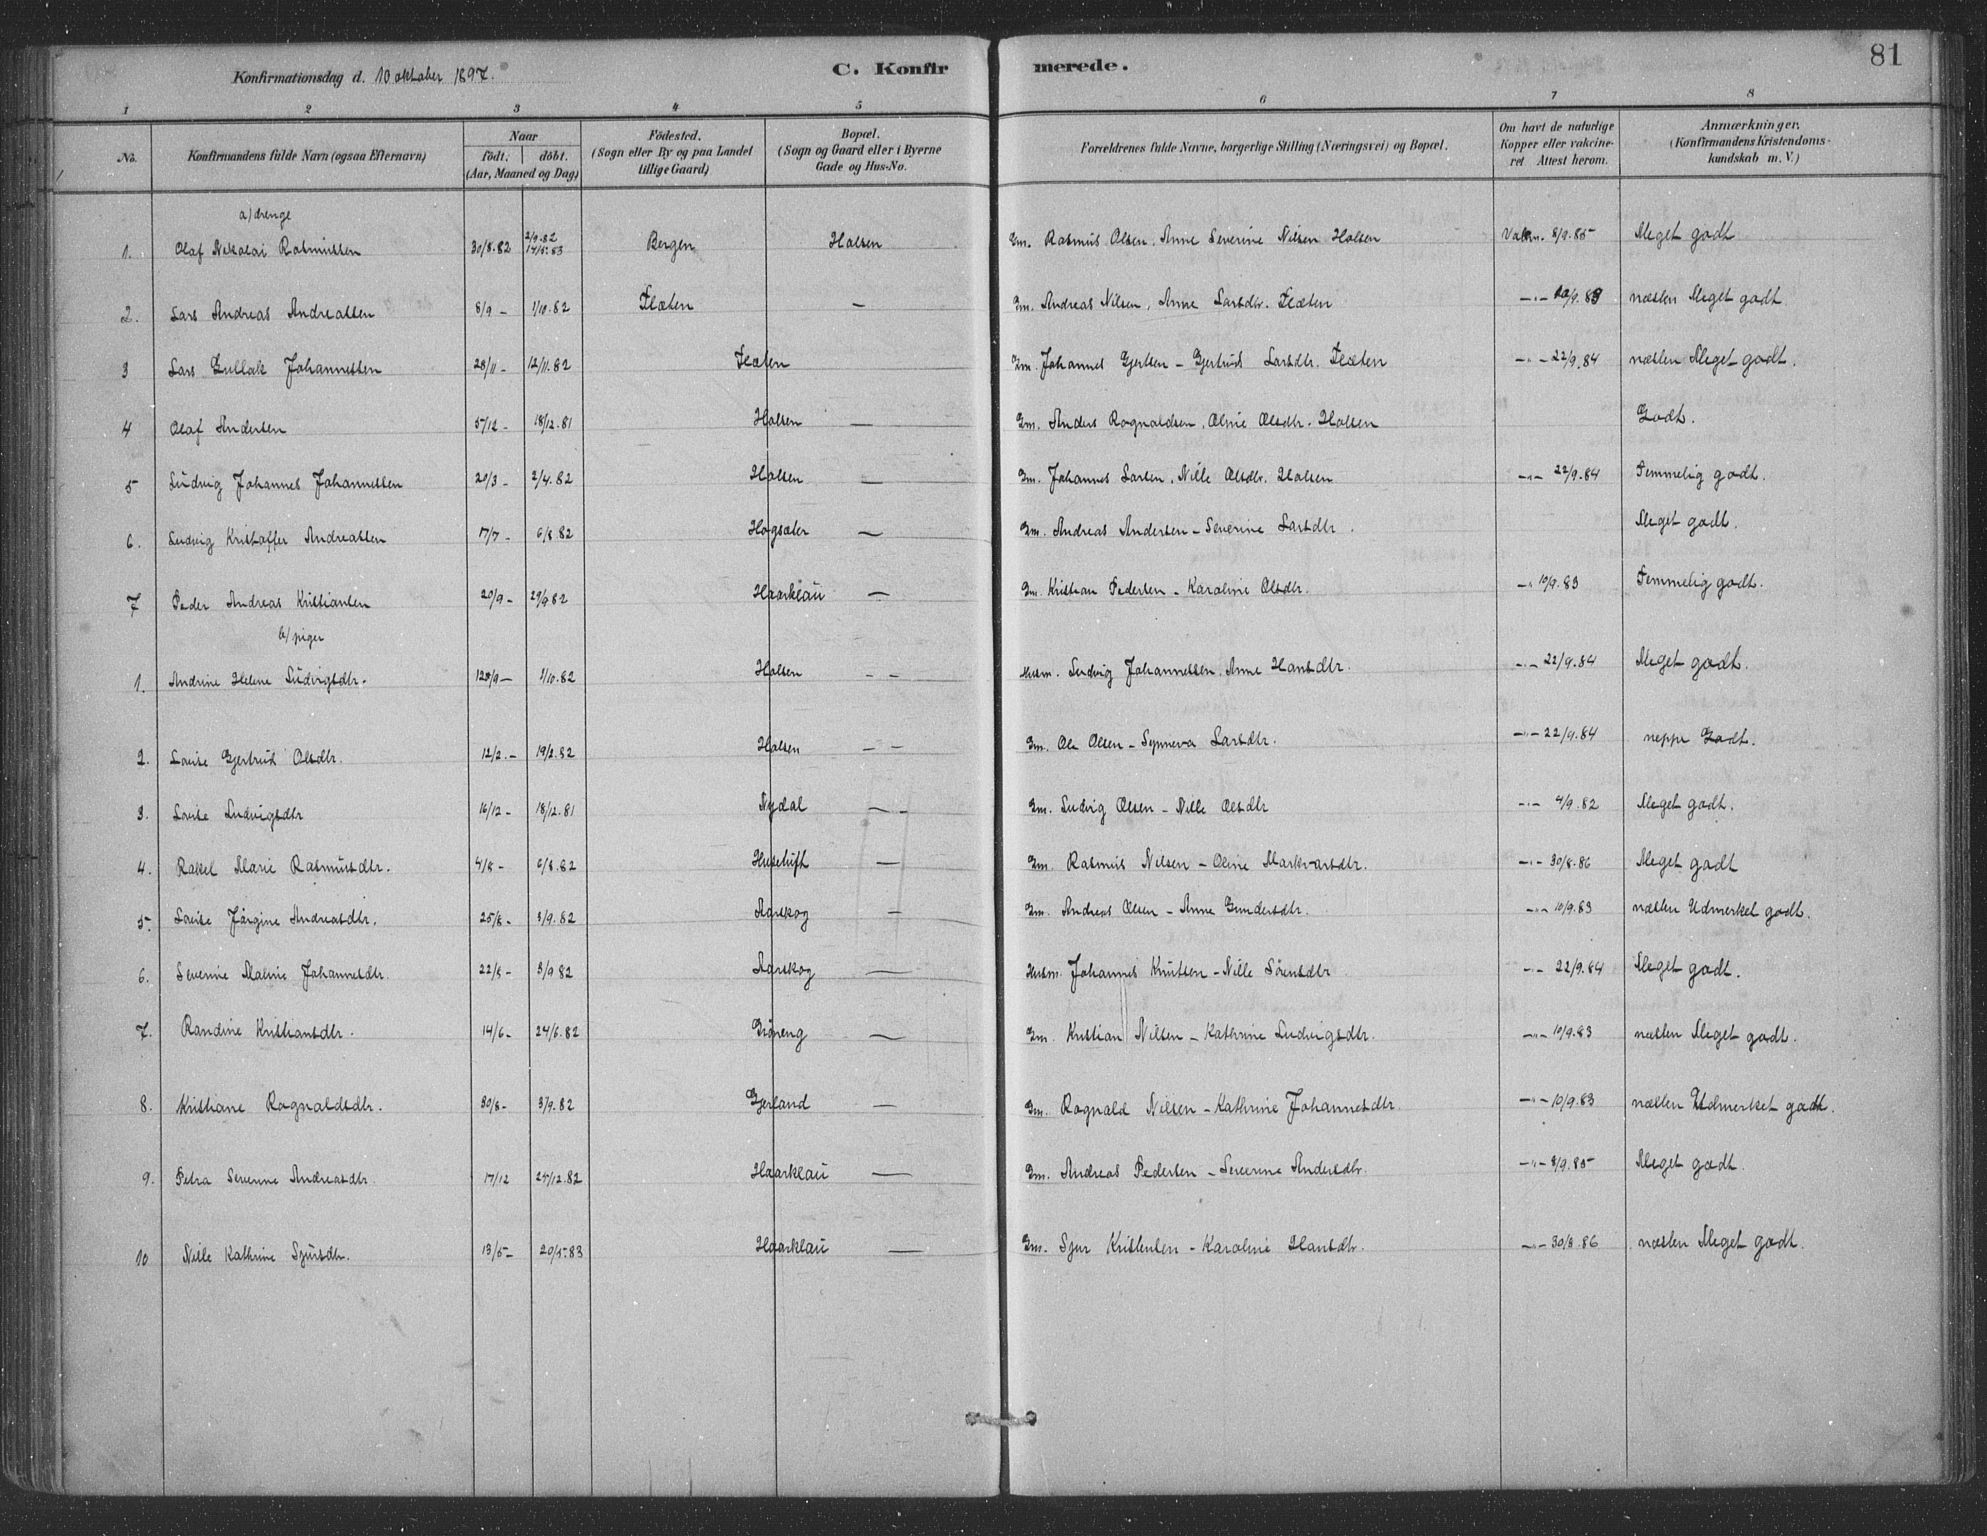 81
Konfirmationsdag d. 10 oktober 1897. C. Konfirmerede.
1 2 3 4 5 6 7 8
No. Konfirmandens fulde Navn (ogsaa Efternavn) Naar födt. döbt. (Aar, Maaned og Dag) Födested. (Sogn eller By og paa Landet tillige Gaard) Bopæl. (Sogn og Gaard eller i Byerne Gade og Hus-No. Forældrenes fulde Navne, borgerlige Stilling (Næringsvei) og Bopæl. Om havt de naturlige Kopper eller vakcineret Attest herom. Anmærkninger. (Konfirmandens Kristendomskundskab m. V.)
a/ drenge
1. Olaf Nikolai Rasmussen 30/8.82 2/9.82 14/5.83 Bergen Halsen Gm. Rasmus Olsen, Anne Severine Nilsen Halsen Vakn. 8/9.85 Meget godt
2. Lars Andreas Andreassen 8/9 - 1/10.82 Flæten — Gm. Andreas Nilsen, Anne Larsdtr. Flæten -"- 10/9.83 næsten Meget godt
3 Lars Gullak Johannessen 28/11 - 12/11.82 Flæten Gm. Johannes Gjertsen - Gjertrud Larsdtr. Flæten -"- 22/9.84 næsten Meget godt.
4 Olaf Andersen 5/12 - 18/12.81 Halsen — Gm. Anders Rognaldsen, Oline Olsdtr. Halsen Godt.
5 Ludvig Johannes Johannessen 20/3 - 2/4.82 Halsen — Gm. Johannes Larsen, Nille Olsdtr. Halsen -"- 22/9.84 Temmelig godt.
6. Ludvig Kristoffer Andreassen 17/7 - 6/8.82 Høgsæter — Gm. Andreas Andersen - Severine Larsdtr. Meget godt.
7 Peder Andreas Kristiansen 20/9 - 29/9 82 Haarklau — Gm. Kristian Pedersen - Karoline Olsdtr. -" 10/9.83 Temmelig godt.
b/ piger
1. Andrine Helene Ludvigsdtr. 1/10.82 Halsen - - Husm. Ludvig Johannessen, Anne Hansdtr. -"- 22/9.84 Meget godt.
2. Lovise Gjertrud Olsdtr. 12/2.- 19/2.82 Halsen — — Gm. Ole Olsen - Synneva Larsdtr. -"- 22/9.84 neppe Godt.
3. Lovise Ludvigsdtr 16/12 - 18/12.81 Nydal — - Gm. Ludvig Olsen - Nille Olsdtr -"- 4/9.82 Meget godt.
4. Rakel Marie Rasmusdtr. 4/8- 6/8.82 Husetuft — Gm. Rasmus Nilsen - Oline Markvardsdtr. -"- 30/8.86 Meget godt
5. Lovise Jørgine Andreasdtr. 25/8- 3/9.82 Aarskog — Gm. Andreas Olsen - Anne Gundersdtr. -"- 10/9.83 næsten Udmerket godt.
6. Severine Malene Johannesdtr. 22/8- 3/9 82 Aarskog — Husm. Johannes Knutsen - Nille Sörensdtr -"- 22/9.84 Meget godt.
7. Randine Kristiansdtr. 14/6- 24/6.82 Gröneng — Gm. Kristian Nilsen - Kathrine Ludvigsdtr. -"- 10/9.83 næsten Meget godt.
8. Kristiane Rognaldsdtr. 30/8- 3/9.82 Gjerland — Gm. Rognald Nilsen - Kathrine Johannesdtr. -"- 10/9.83 næsten Udmerket godt.
9. Petra Severine Andreasdtr 17/12 24/12.82 Haarklau — Gm. Andreas Pedersen - Severine Andersdtr. -"- 8/9.85 Meget godt.
10 Nille Kathrine Sjursdtr. 13/5- 20/5.83 Haarklau — Gm. Sjur Kristensen - Karoline Hansdtr. -"- 30/8.86 næsten Meget godt.